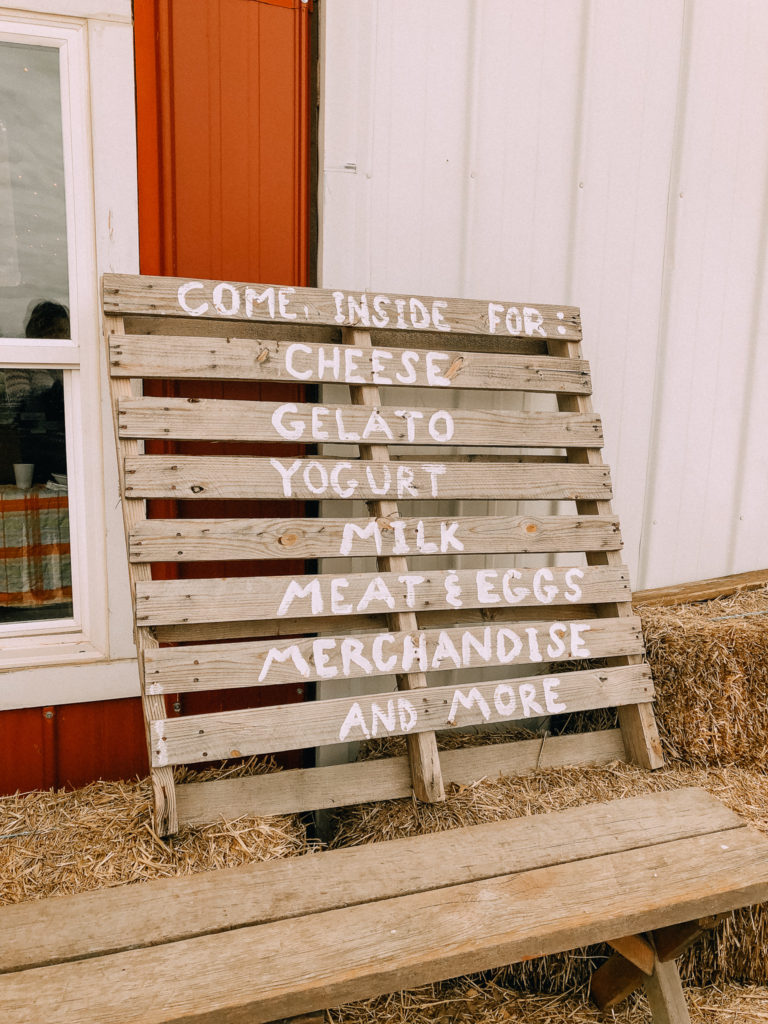 COME INSIDE FOR:
CHEESE
GELATO
YOGURT
MILK
MEAT & EGGS
MERCHANDISE
AND MORE